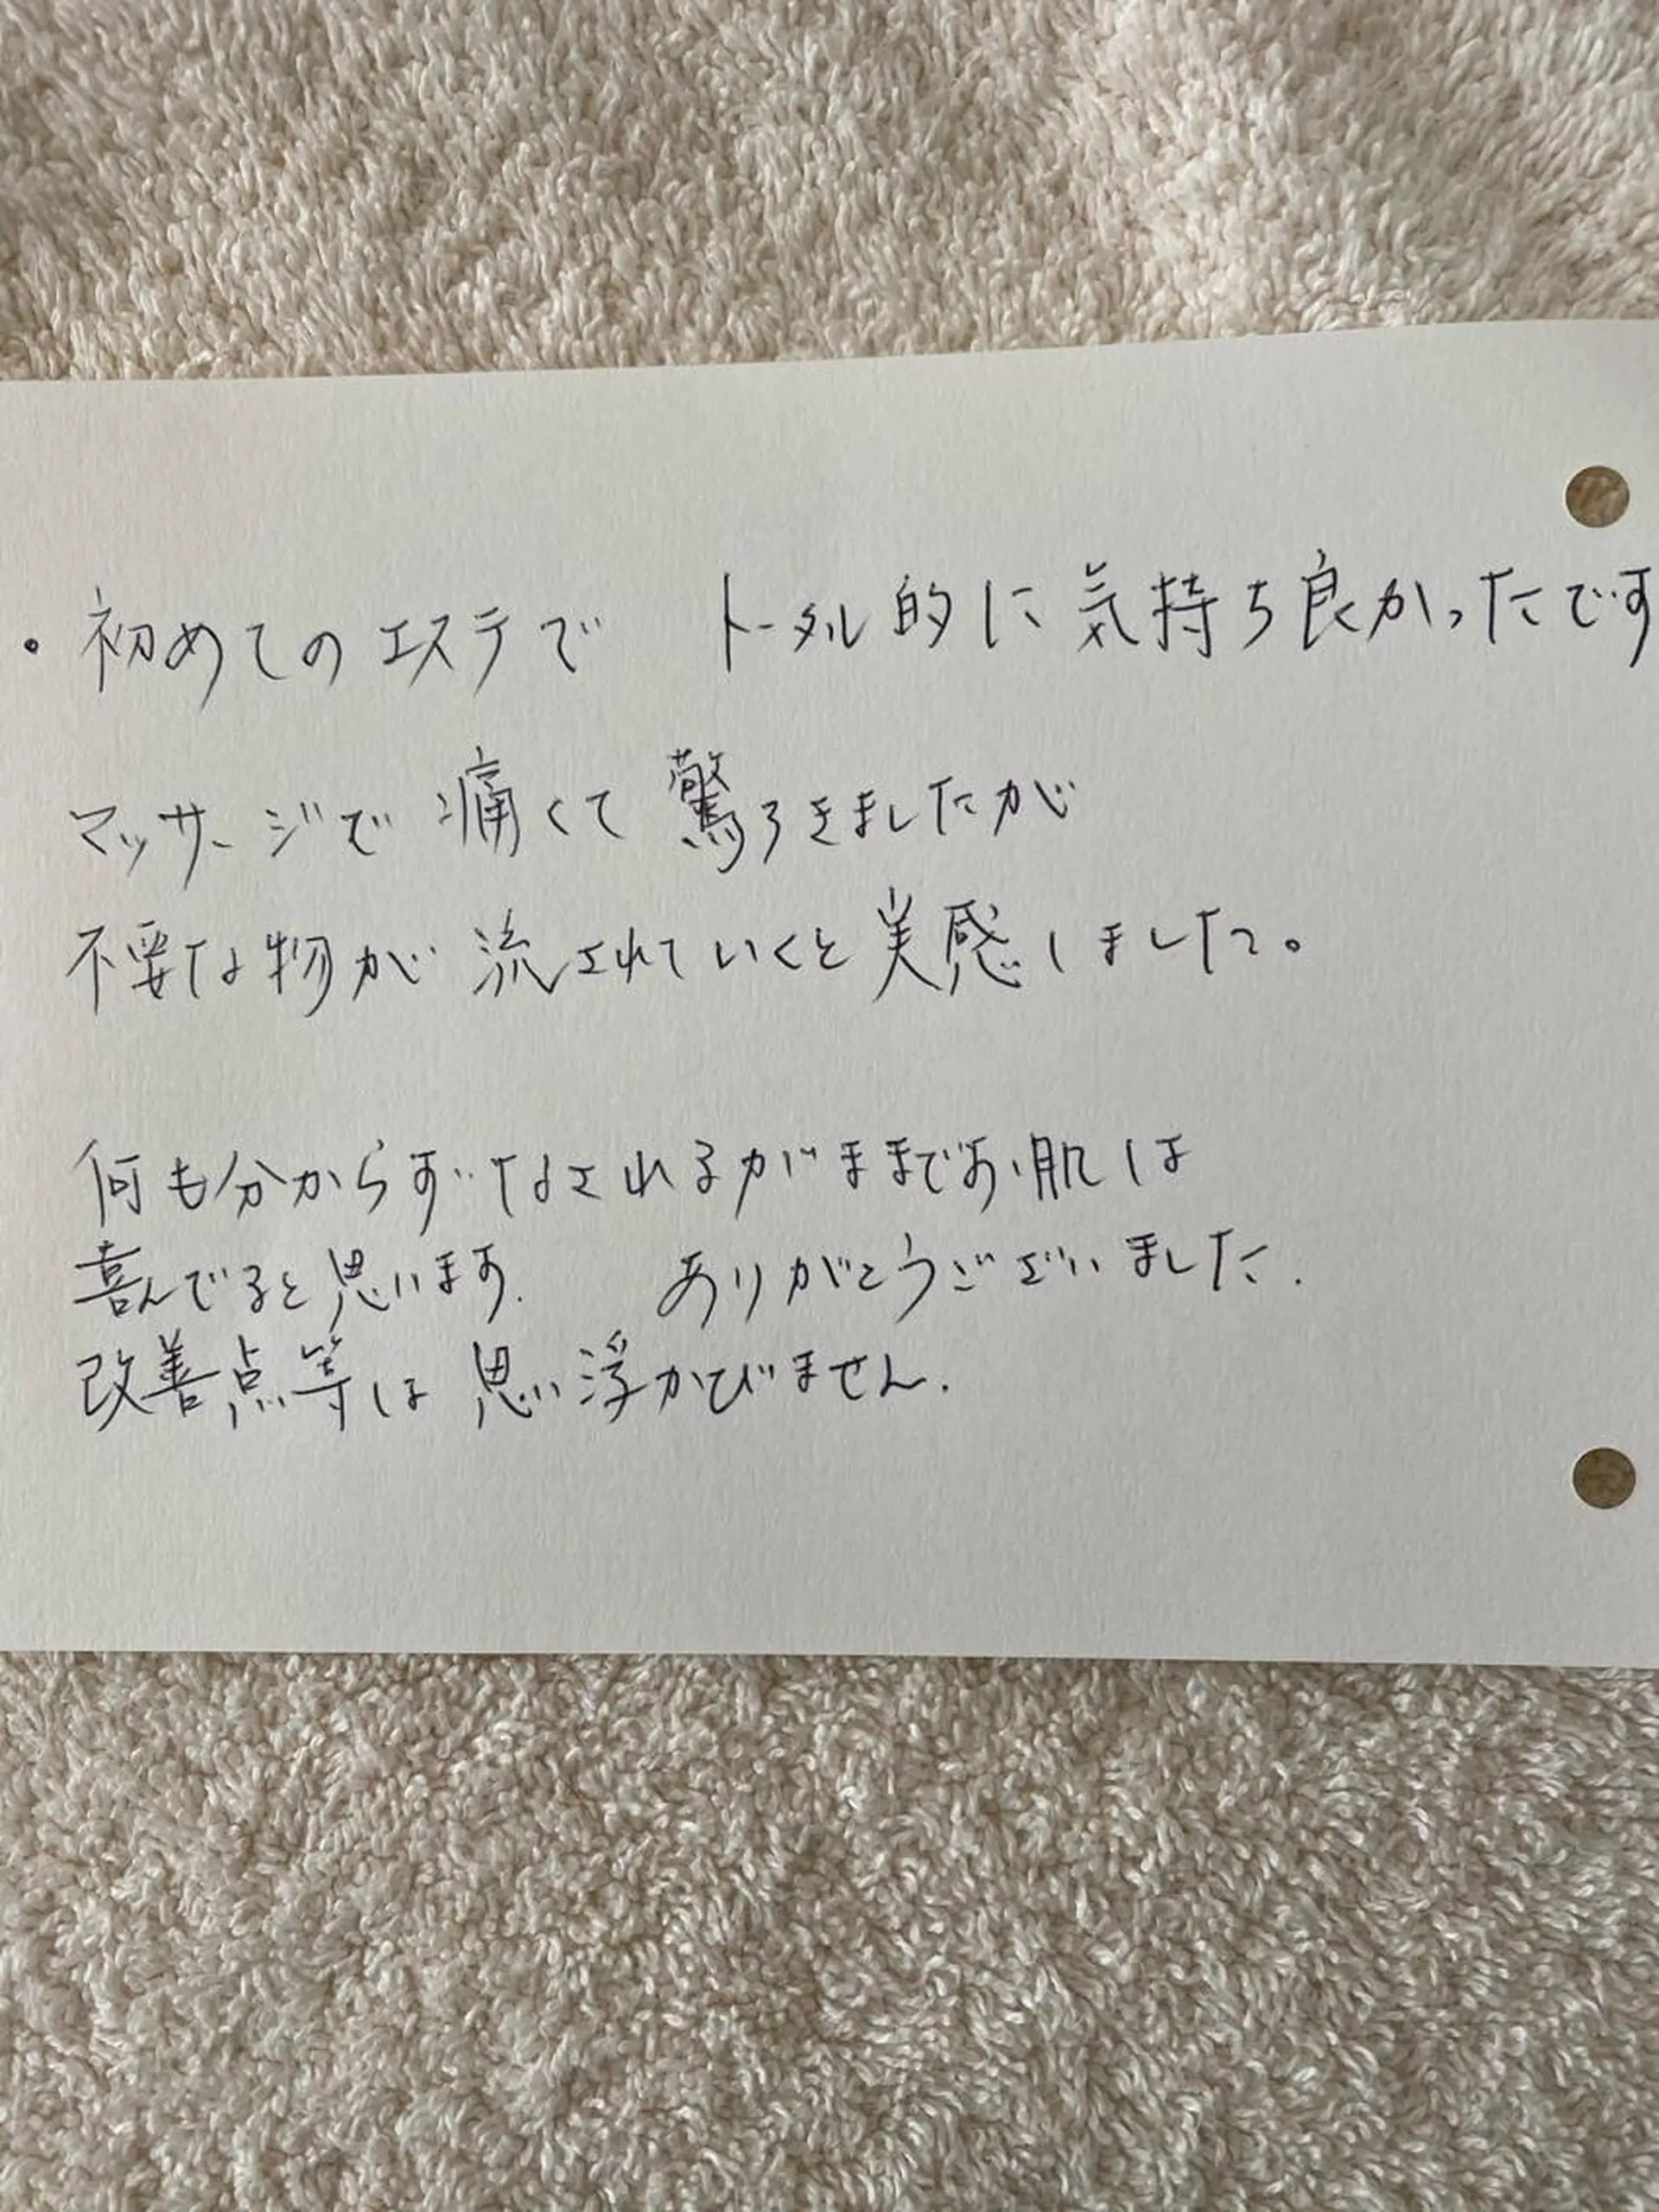 ・初めてのエステで トータル的に気持ち良かったです
マッサージで痛くて驚ろきましたが
不要な物が流されていくと実感しました。
何も分からず なされるがままでお肌は
喜んでると思います. ありがとうございました.
改善点等は思い浮かびません.